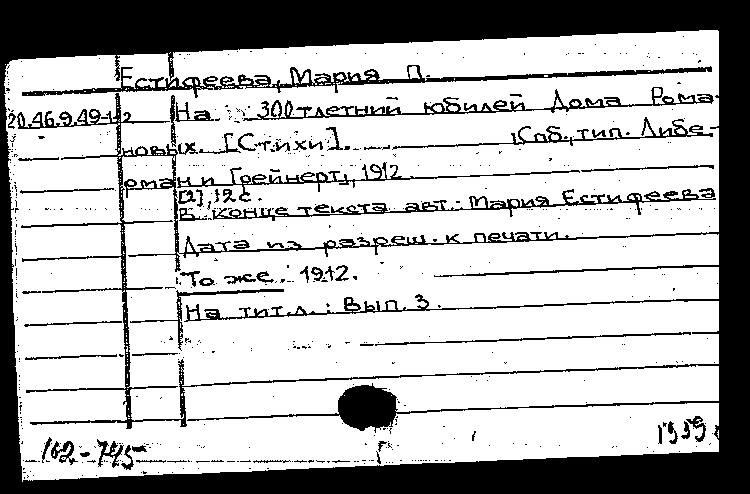 Естифеева, Мария П.
20.46.9.49-1-2 На 300-летний юбилей Дома Рома-
новых. [Стихи]. [Спб., тип. Либер-
ман и Грейнерт], 1912
[2], 12 с.
В конце текста авт.: Мария Естифеева
Дата из разреш. к печати.
То же. 1912.
На тит.л.: Вып. 3.
162-745
1959